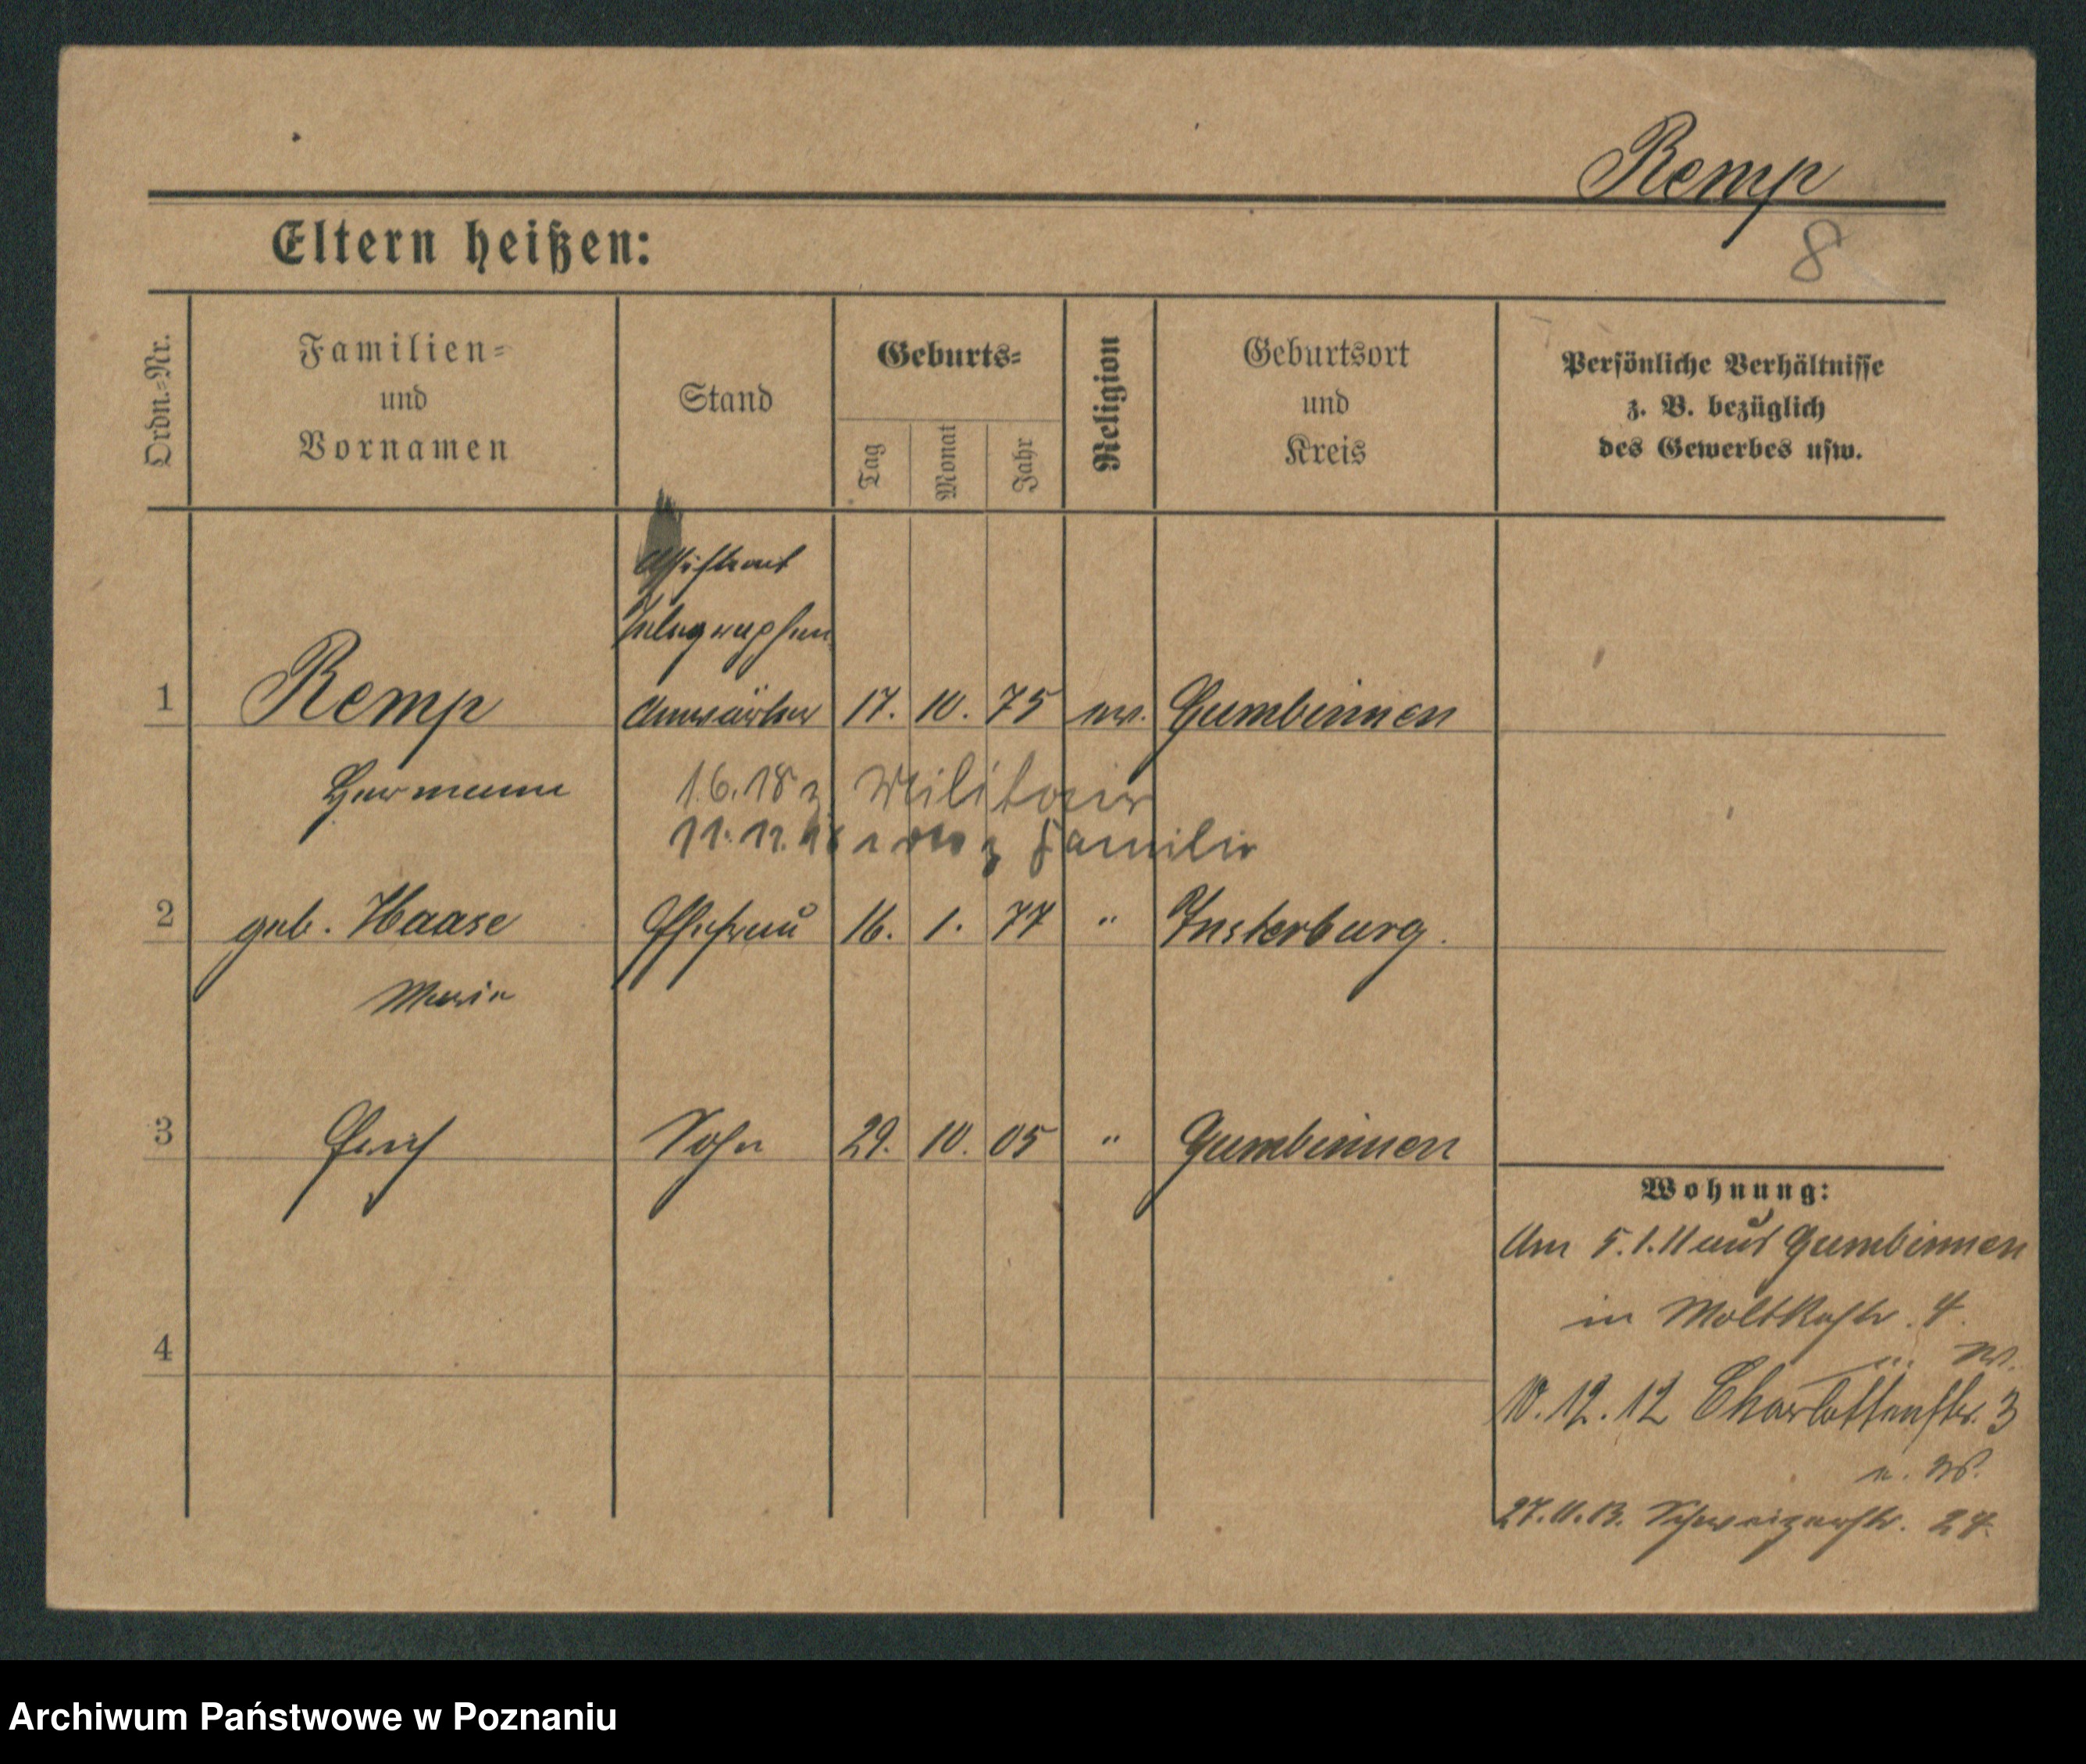 Remp
8
Eltern heißen:
Ordn.=Nr.
Familien=
und
Vornamen
Stand
Geburts=
Tag
Monat
Jahr
Religion
Geburtsort
und
Kreis
Persönliche Verhältnisse
z. B. bezüglich
des Gewerbes usw.
Assistent
Telegraphen
1 Remp Anwärter 17. 10. 75 ev. Gumbinnen
Hermann 1.6.18 z Militair
11.12.18 z Familie
2 geb. Haase Ehefrau 16. 1. 77 " Insterburg.
Marie
3 Erich Sohn 29. 10. 05 " Gumbinnen
4
Wohnung:
Am 5.1.11 aus Gumbinnen
in Moltkestr. 4.
n. W.
10.12.12 Charlottenstr. 3
n. W.
27.11.13. Schweizerstr. 24.
Archiwum Państwowe w Poznaniu